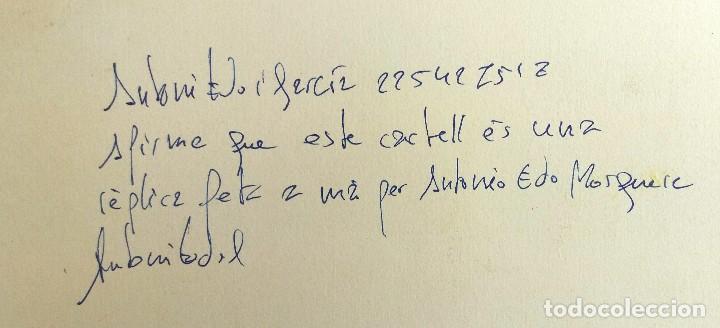 Antoni Edo i García 22542751Z
Afirme que este cartell és una
rèplica feta a mà per Antonio Edo Mosquera
todocoleccion.net